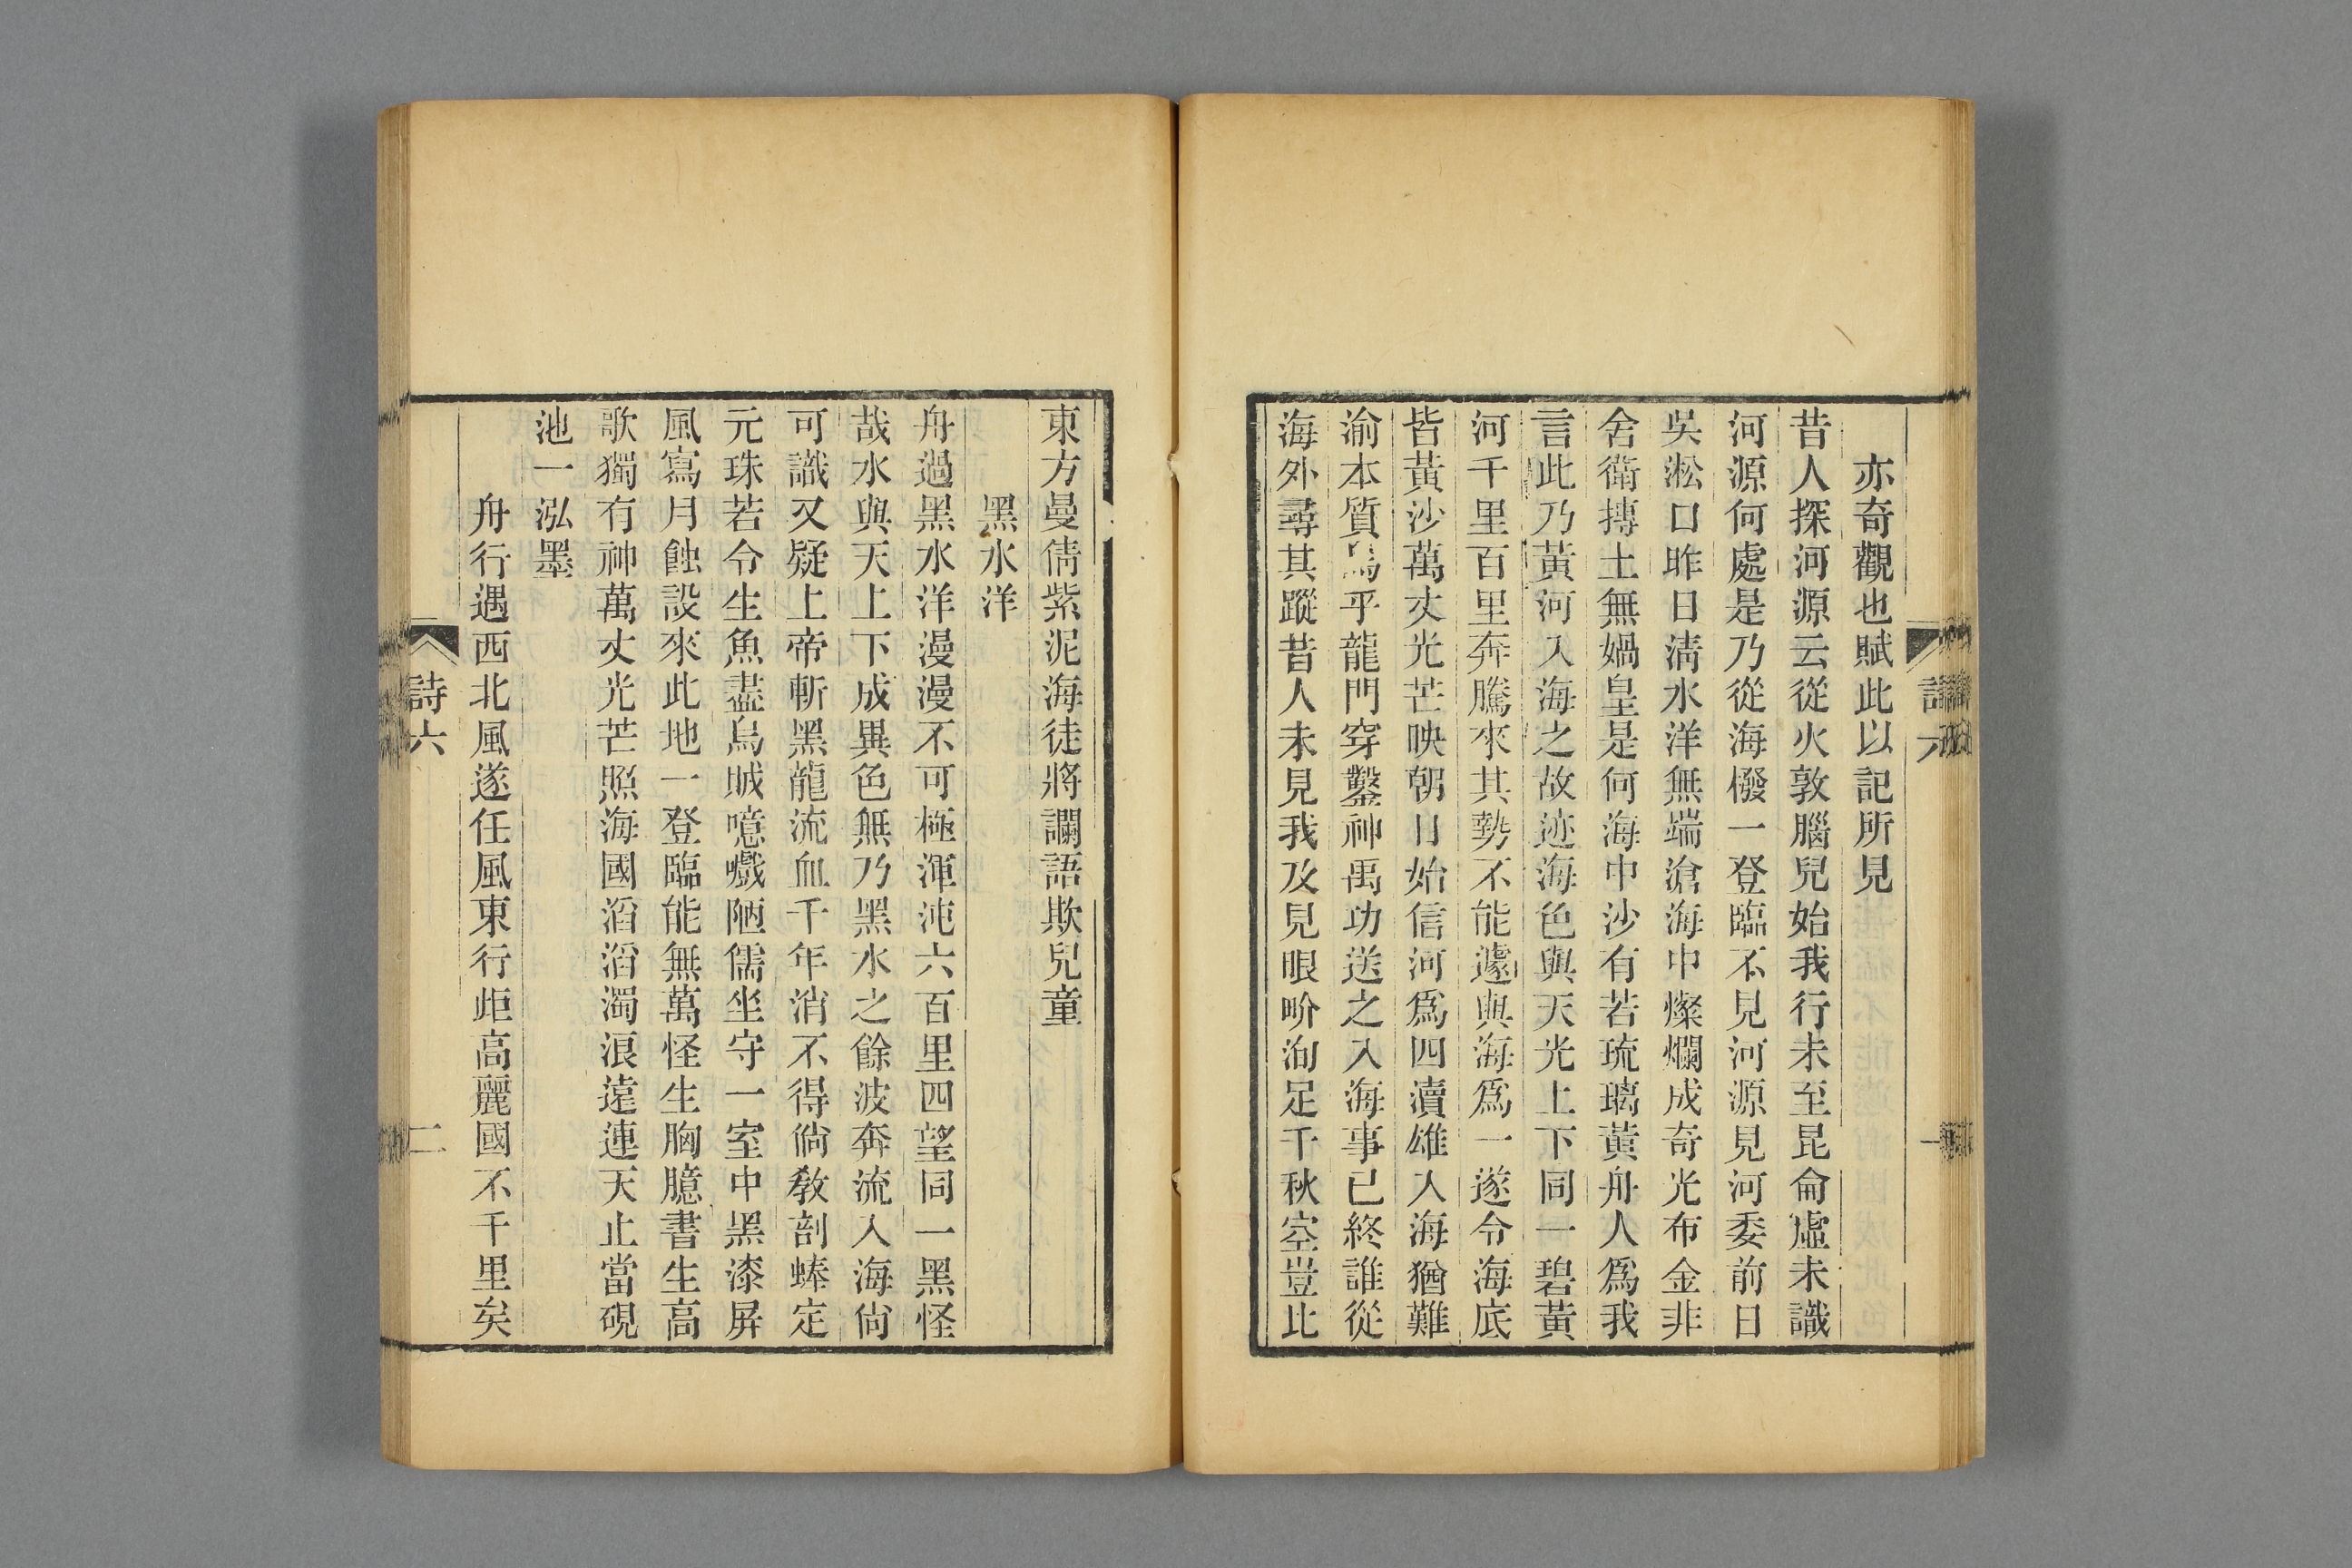 亦奇觀也賦此以記所見
昔人探河源云從火敦腦兒始我行未至昆侖虛未識
河源何處是乃從海橃一登臨不見河源見河委前日
吳淞口昨日清水洋無端滄海中燦爛成奇光布金非
舍衛摶土無媧皇是何海中沙有若琉璃黃舟人爲我
言此乃黃河入海之故迹海色與天光上下同一碧黃
河千里百里奔騰來其勢不能遽與海爲一遂令海底
皆黃沙萬丈光芒映朝日始信河爲四瀆雄入海猶難
渝本質烏乎龍門穿鑿神禹功送之入海事已終誰從
海外尋其蹤昔人未見我及見眼吤洵足千秋空豈此
詩六
一
東方曼倩紫泥海徒將讕語欺兒童
黑水洋
舟過黑水洋漫漫不可極渾沌六百里四望同一黑怪
哉水與天上下成異色無乃黑水之餘波奔流入海尙
可識又疑上帝斬黑龍流血千年消不得倘敎剖蜯定
元珠若令生魚盡烏賊噫嚱陋儒坐守一室中黑漆屏
風寫月蝕設來此地一登臨能無萬怪生胸臆書生高
歌獨有神萬丈光芒照海國滔滔濁浪遠連天止當硯
池一泓墨
舟行遇西北風遂任風東行歫高麗國不千里矣
詩六
二